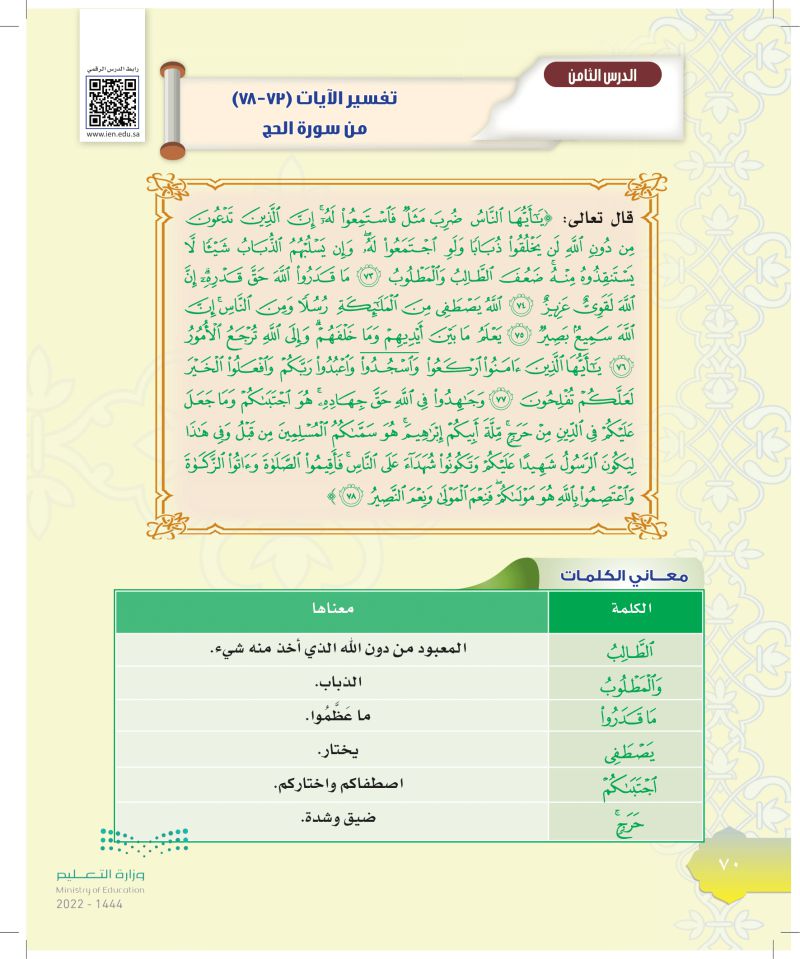 رابط الدرس الرقمي
www.ien.edu.sa
الدرس الثامن
تفسير الآيات (٧٣-٧٨)
من سورة الحج
قال تعالى: ﴿يَٰٓأَيُّهَا ٱلنَّاسُ ضُرِبَ مَثَلٞ فَٱسۡتَمِعُواْ لَهُۥٓۚ إِنَّ ٱلَّذِينَ تَدۡعُونَ
مِن دُونِ ٱللَّهِ لَن يَخۡلُقُواْ ذُبَابٗا وَلَوِ ٱجۡتَمَعُواْ لَهُۥۖ وَإِن يَسۡلُبۡهُمُ ٱلذُّبَابُ شَيۡـٔٗا لَّا
يَسۡتَنقِذُوهُ مِنۡهُۚ ضَعُفَ ٱلطَّالِبُ وَٱلۡمَطۡلُوبُ ٧٣ مَا قَدَرُواْ ٱللَّهَ حَقَّ قَدۡرِهِۦٓۚ إِنَّ
ٱللَّهَ لَقَوِيٌّ عَزِيزٌ ٧٤ ٱللَّهُ يَصۡطَفِي مِنَ ٱلۡمَلَٰٓئِكَةِ رُسُلٗا وَمِنَ ٱلنَّاسِۚ إِنَّ
ٱللَّهَ سَمِيعُۢ بَصِيرٞ ٧٥ يَعۡلَمُ مَا بَيۡنَ أَيۡدِيهِمۡ وَمَا خَلۡفَهُمۡۚ وَإِلَى ٱللَّهِ تُرۡجَعُ ٱلۡأُمُورُ
٧٦ يَٰٓأَيُّهَا ٱلَّذِينَ ءَامَنُواْ ٱرۡكَعُواْ وَٱسۡجُدُواْۤ وَٱعۡبُدُواْ رَبَّكُمۡ وَٱفۡعَلُواْ ٱلۡخَيۡرَ
لَعَلَّكُمۡ تُفۡلِحُونَ ٧٧ وَجَٰهِدُواْ فِي ٱللَّهِ حَقَّ جِهَادِهِۦۚ هُوَ ٱجۡتَبَىٰكُمۡ وَمَا جَعَلَ
عَلَيۡكُمۡ فِي ٱلدِّينِ مِنۡ حَرَجٖۚ مِّلَّةَ أَبِيكُمۡ إِبۡرَٰهِيمَۚ هُوَ سَمَّىٰكُمُ ٱلۡمُسۡلِمِينَ مِن قَبۡلُ وَفِي هَٰذَا
لِيَكُونَ ٱلرَّسُولُ شَهِيدًا عَلَيۡكُمۡ وَتَكُونُواْ شُهَدَآءَ عَلَى ٱلنَّاسِۚ فَأَقِيمُواْ ٱلصَّلَوٰةَ وَءَاتُواْ ٱلزَّكَوٰةَ
وَٱعۡتَصِمُواْ بِٱللَّهِ هُوَ مَوۡلَىٰكُمۡۖ فَنِعۡمَ ٱلۡمَوۡلَىٰ وَنِعۡمَ ٱلنَّصِيرُ ٧٨﴾
معاني الكلمات
الكلمة معناها
ٱلطَّالِبُ المعبود من دون الله الذي أخذ منه شيء.
وَٱلۡمَطۡلُوبُ الذباب.
مَا قَدَرُواْ ما عَظَّمُوا.
يَصۡطَفِي يختار.
ٱجۡتَبَىٰكُمۡ اصطفاكم واختاركم.
حَرَجٖۚ ضيق وشدة.
وزارة التعليم
Ministry of Education
2022 - 1444
٧٠